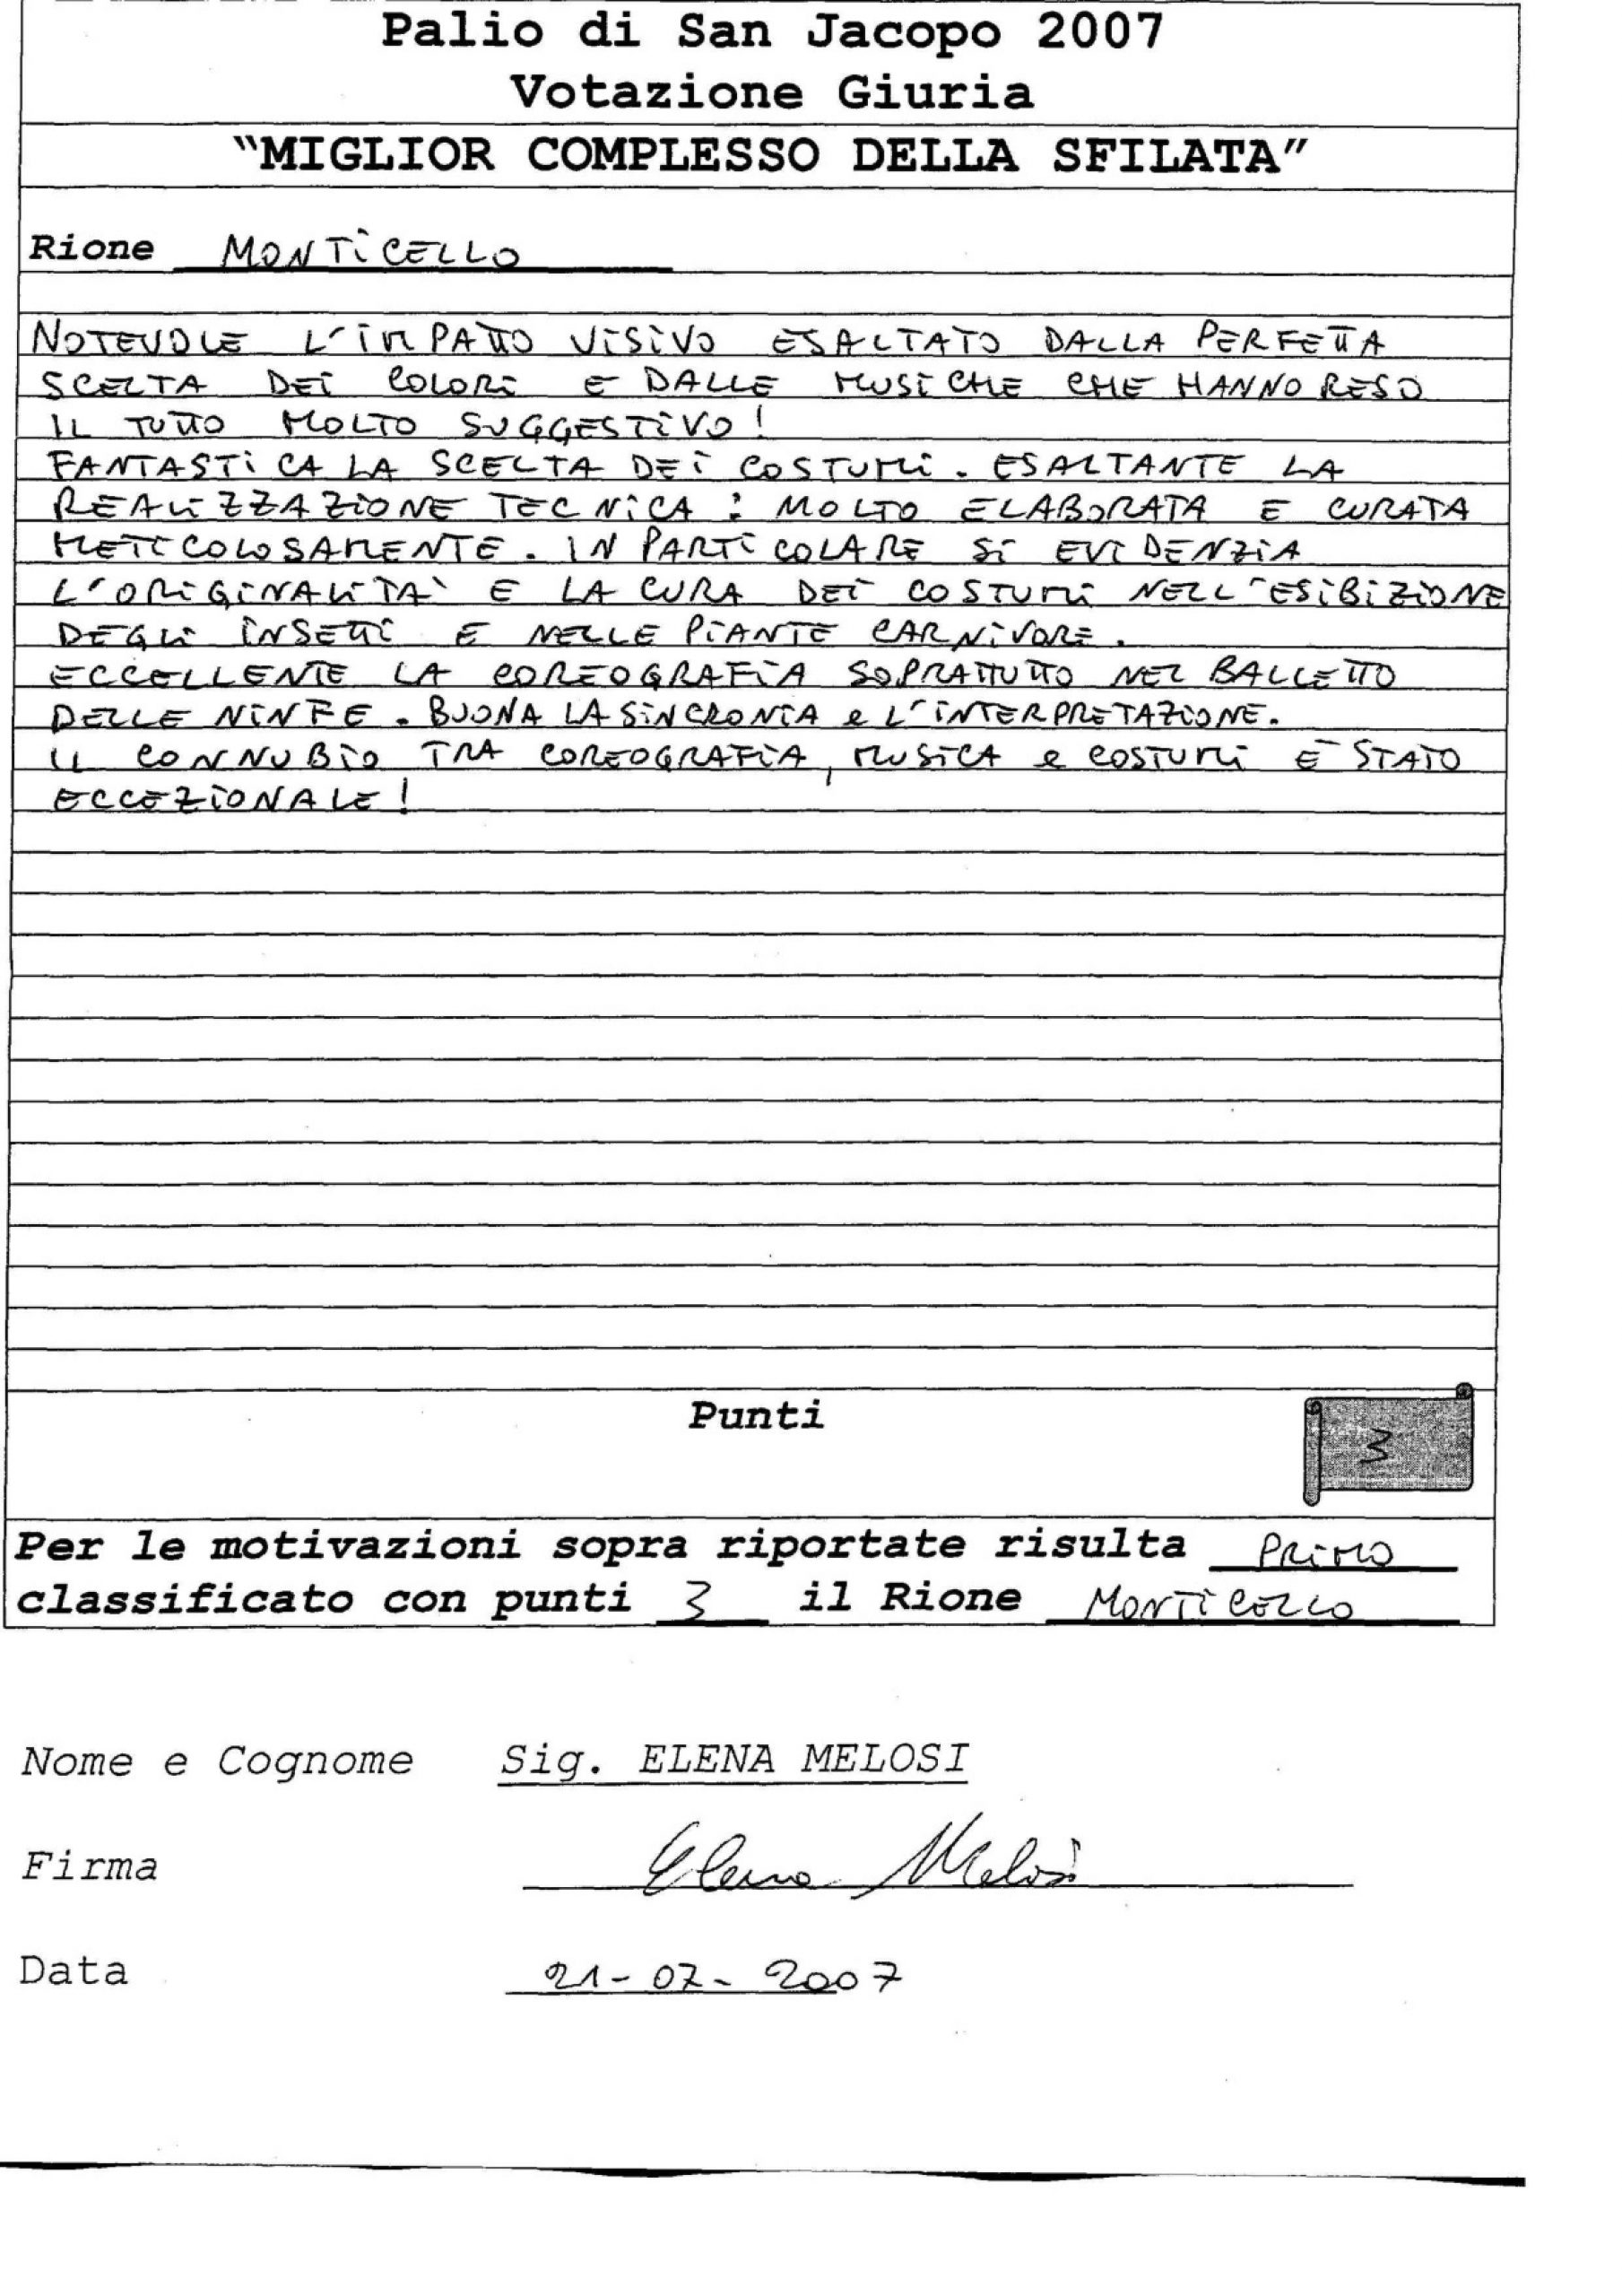 Palio di San Jacopo 2007
Votazione Giuria
"MIGLIOR COMPLESSO DELLA SFILATA"
Rione MONTICELLO
NOTEVOLE L'IMPATTO VISIVO ESALTATO DALLA PERFETTA
SCELTA DEI COLORI E DALLE MUSICHE CHE HANNO RESO
IL TUTTO MOLTO SUGGESTIVO!
FANTASTICA LA SCELTA DEI COSTUMI. ESALTANTE LA
REALIZZAZIONE TECNICA: MOLTO ELABORATA E CURATA
METICOLOSAMENTE. IN PARTICOLARE SI EVIDENZIA
L'ORIGINALITA' E LA CURA DEI COSTUMI NELL'ESIBIZIONE
DEGLI INSETTI E NELLE PIANTE CARNIVORE.
ECCELLENTE LA COREOGRAFIA SOPRATTUTTO NEL BALLETTO
DELLE NINFE. BUONA LA SINCRONIA e L'INTERPRETAZIONE.
IL CONNUBIO TRA COREOGRAFIA, MUSICA e COSTUMI E' STATO
ECCEZIONALE!
Punti
3
Per le motivazioni sopra riportate risulta PRIMO
classificato con punti 3 il Rione MONTICELLO
Nome e Cognome Sig. ELENA MELOSI
Firma Elena Melosi
Data 21-07-2007